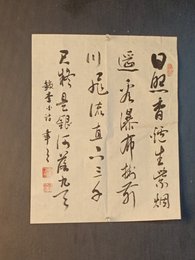 日照香炉生紫烟
遥看瀑布挂前
川飞流直下三千
尺疑是银河落九天
李白诗